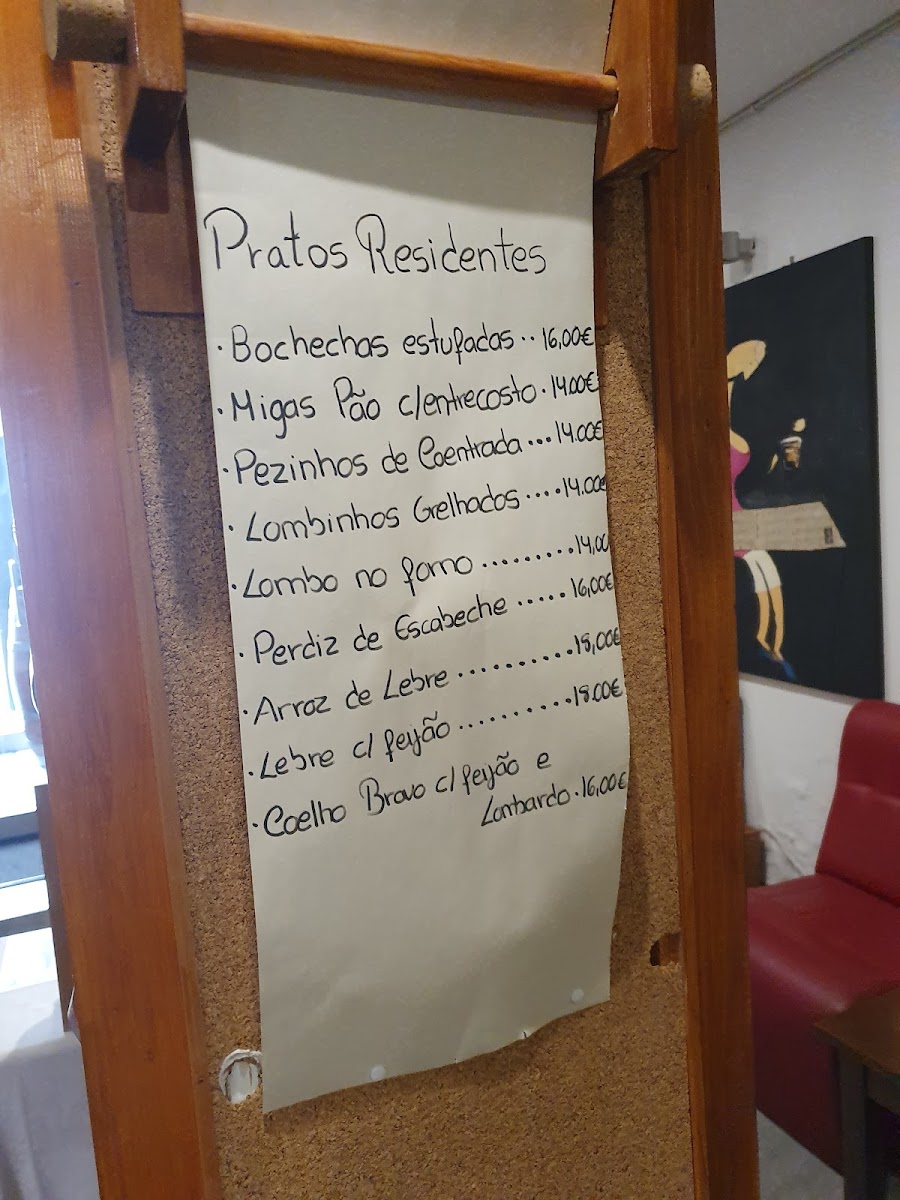 Pratos Residentes
· Bochechas estufadas ·· 16,00€
· Migas Pão c/entrecosto · 14.00€
· Pezinhos de Coentrada ... 14.00€
· Lombinhos Grelhados .... 14.00€
· Lombo no forno ......... 14,00
· Perdiz de Escabeche ..... 16,00€
· Arroz de Lebre .......... 18,00€
· Lebre c/ feijão .......... 18.00€
· Coelho Bravo c/ feijão e
Lombardo · 16,00€